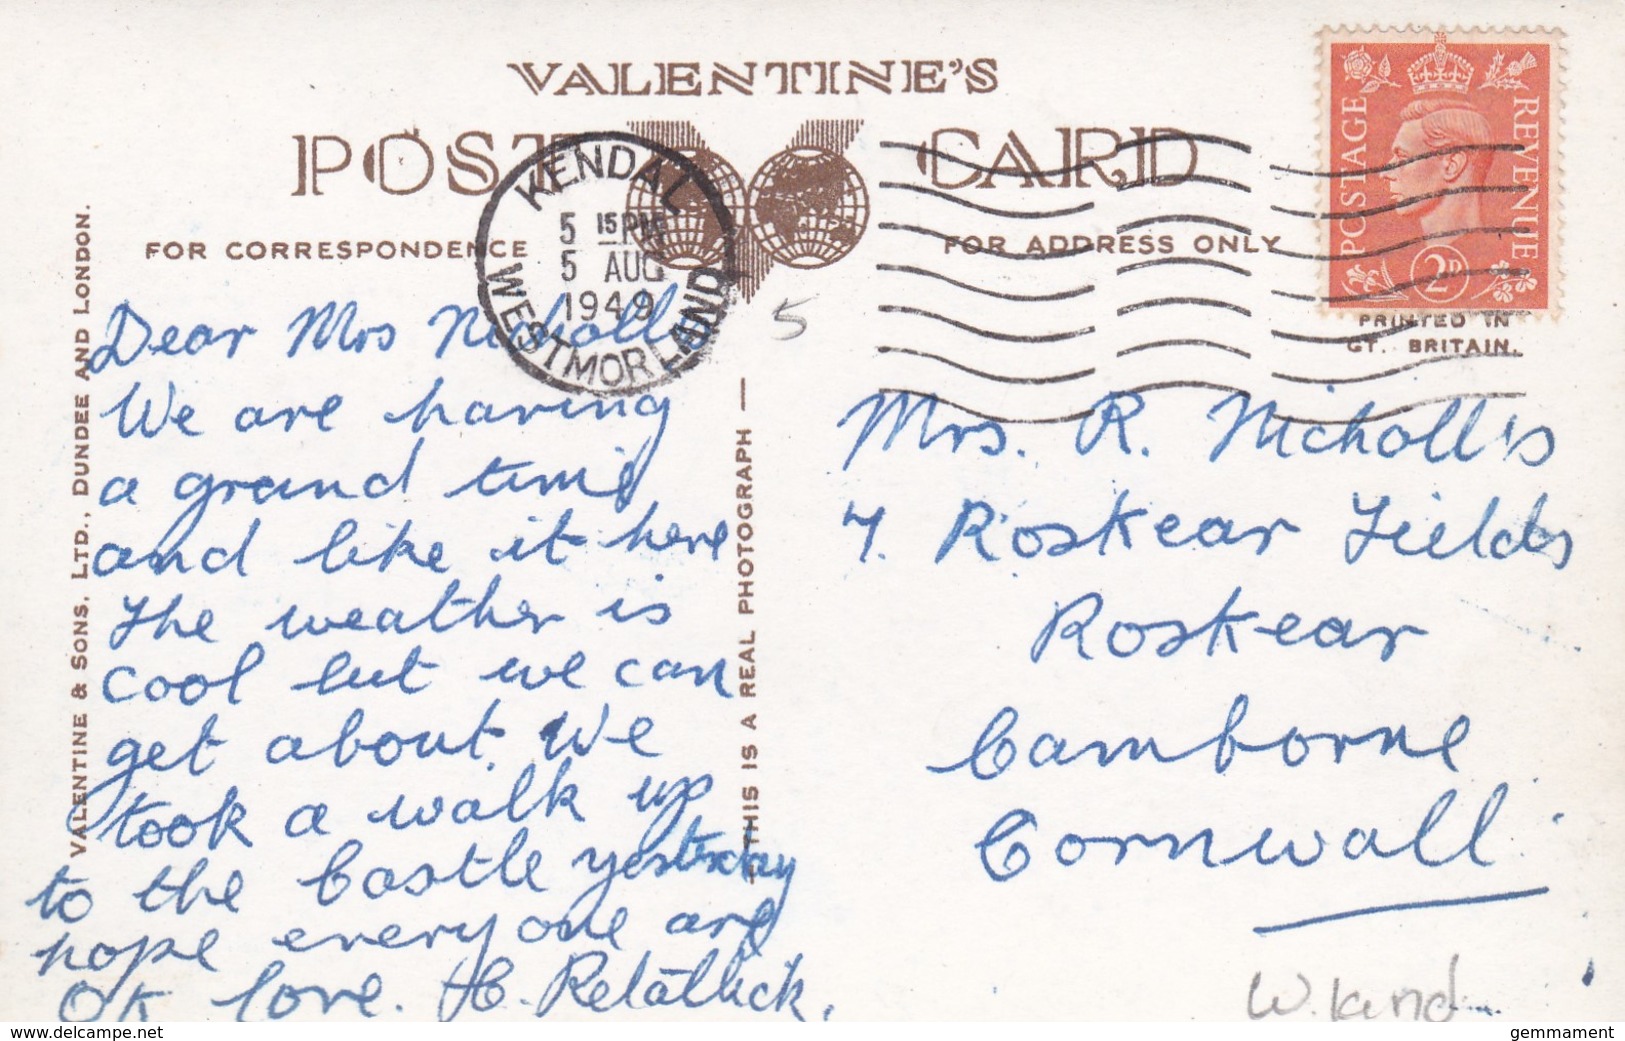 VALENTINE'S
POST CARD
FOR CORRESPONDENCE
FOR ADDRESS ONLY
KENDAL
5 15 PM
5 AUG
1949
WESTMORLAND
POSTAGE REVENUE
2D
PRINTED IN
GT. BRITAIN.
5
VALENTINE & SONS, LTD., DUNDEE AND LONDON.
THIS IS A REAL PHOTOGRAPH
Dear Mrs Nicholls
We are having
a grand time
and like it here
The weather is
cool but we can
get about. We
took a walk up
to the Castle yesterday
hope everyone are
OK love.
Mrs. R. Nicholls
7. Roskear Fields
Roskear
Camborne
Cornwall
www.delcampe.net
gemmament